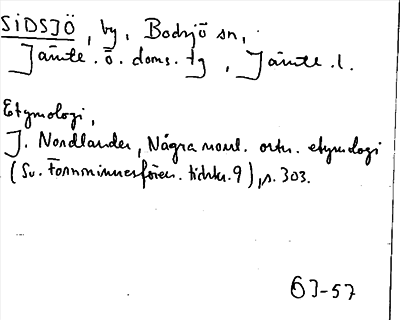 SIDSJÖ, by, Bodsjö sn,
Jämte. ö. doms. tg, Jämte. l.
Etymologi,
J. Nordlander, Några norrl. ortn. etymologi
(Sv. Fornminnesfören. tidskr. 9), s. 303.
63-57